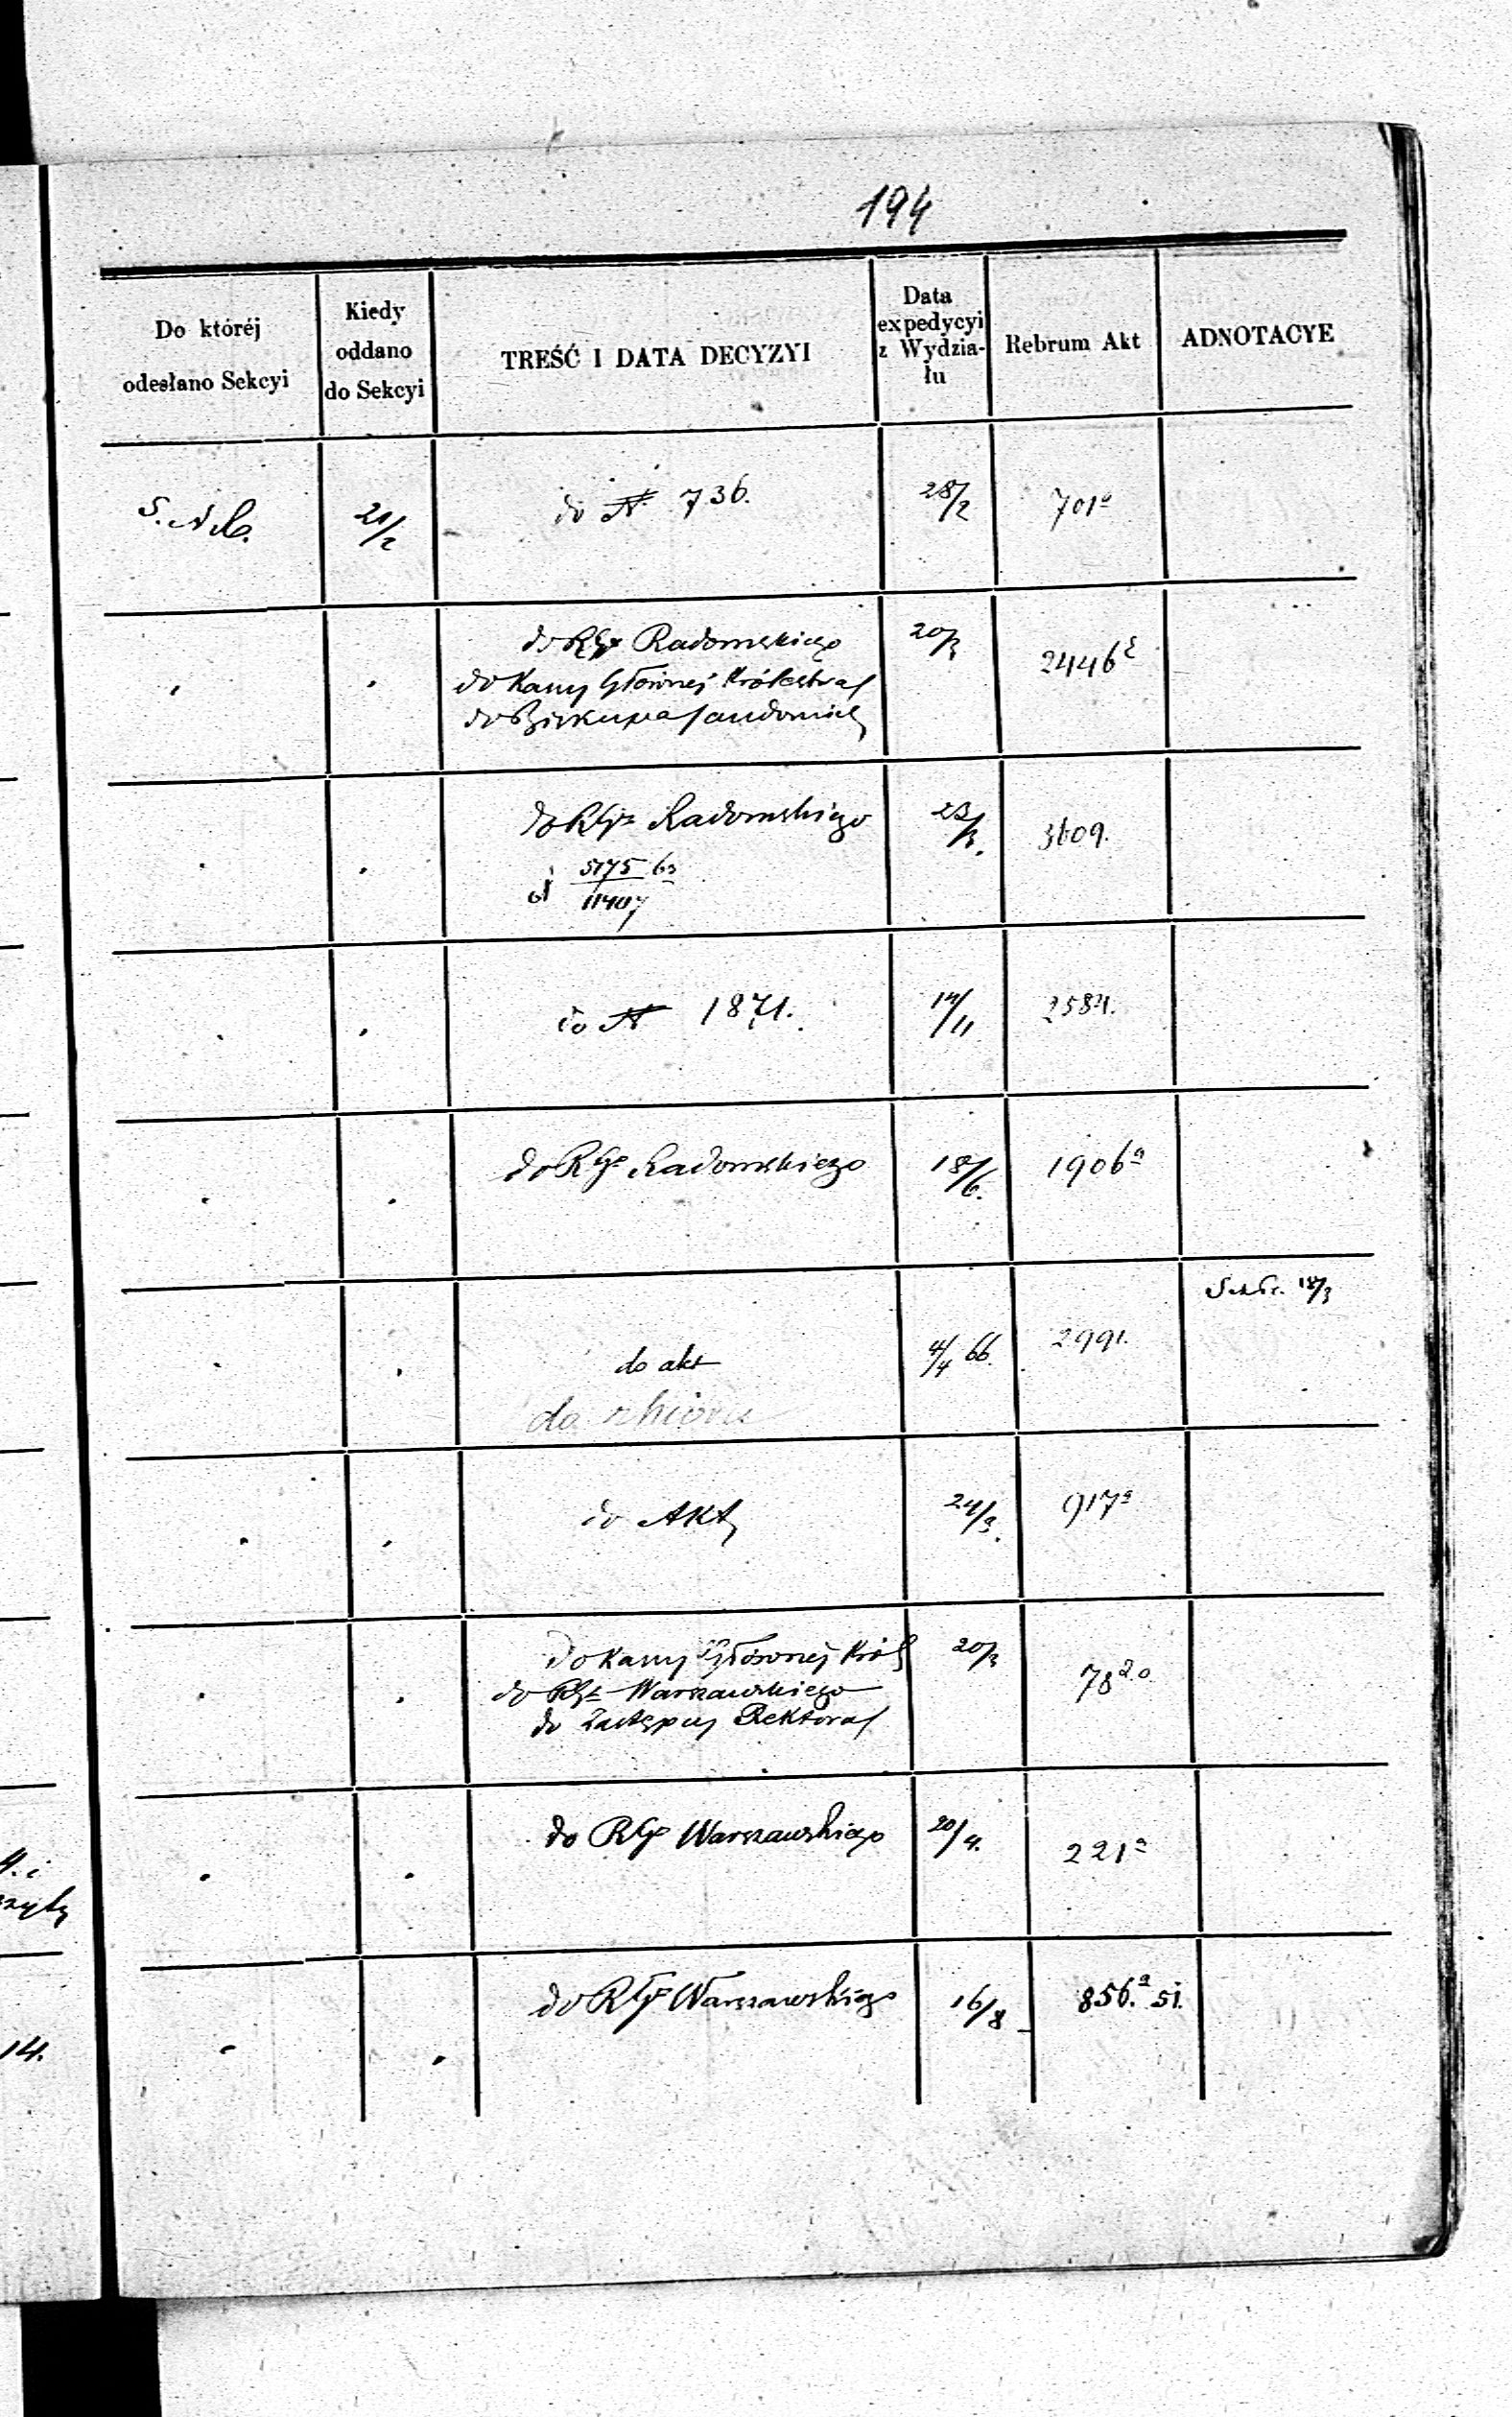 194
Do któréj
odesłano Sekcyi
Kiedy
oddano
do Sekcyi
TREŚĆ I DATA DECYZYI
Data
expedycyi
z Wydzia-
łu
Rebrum Akt
ADNOTACYE
21/2
do N 736.
28/2
701a
do RGo Radomskiego
do Kassy Głównej Królestwa
do Biskupa Sandomir
20/3
2446
do RGo Radomskiego
23/3.
3609.
do N 1871.
14/11
2584.
do RGo Radomskiego
18/6.
1906a
18/3
do akt
4/4 66.
2991.
do Akt
24/3.
917a
do Kassy Głównej Król
do RGo Warszawskiego
do Zastępcy Rektora
20/3
78
do RGo Warszawskiego
20/4.
221a
do RGo Warszawskiego
16/8
856.a 51.
14.